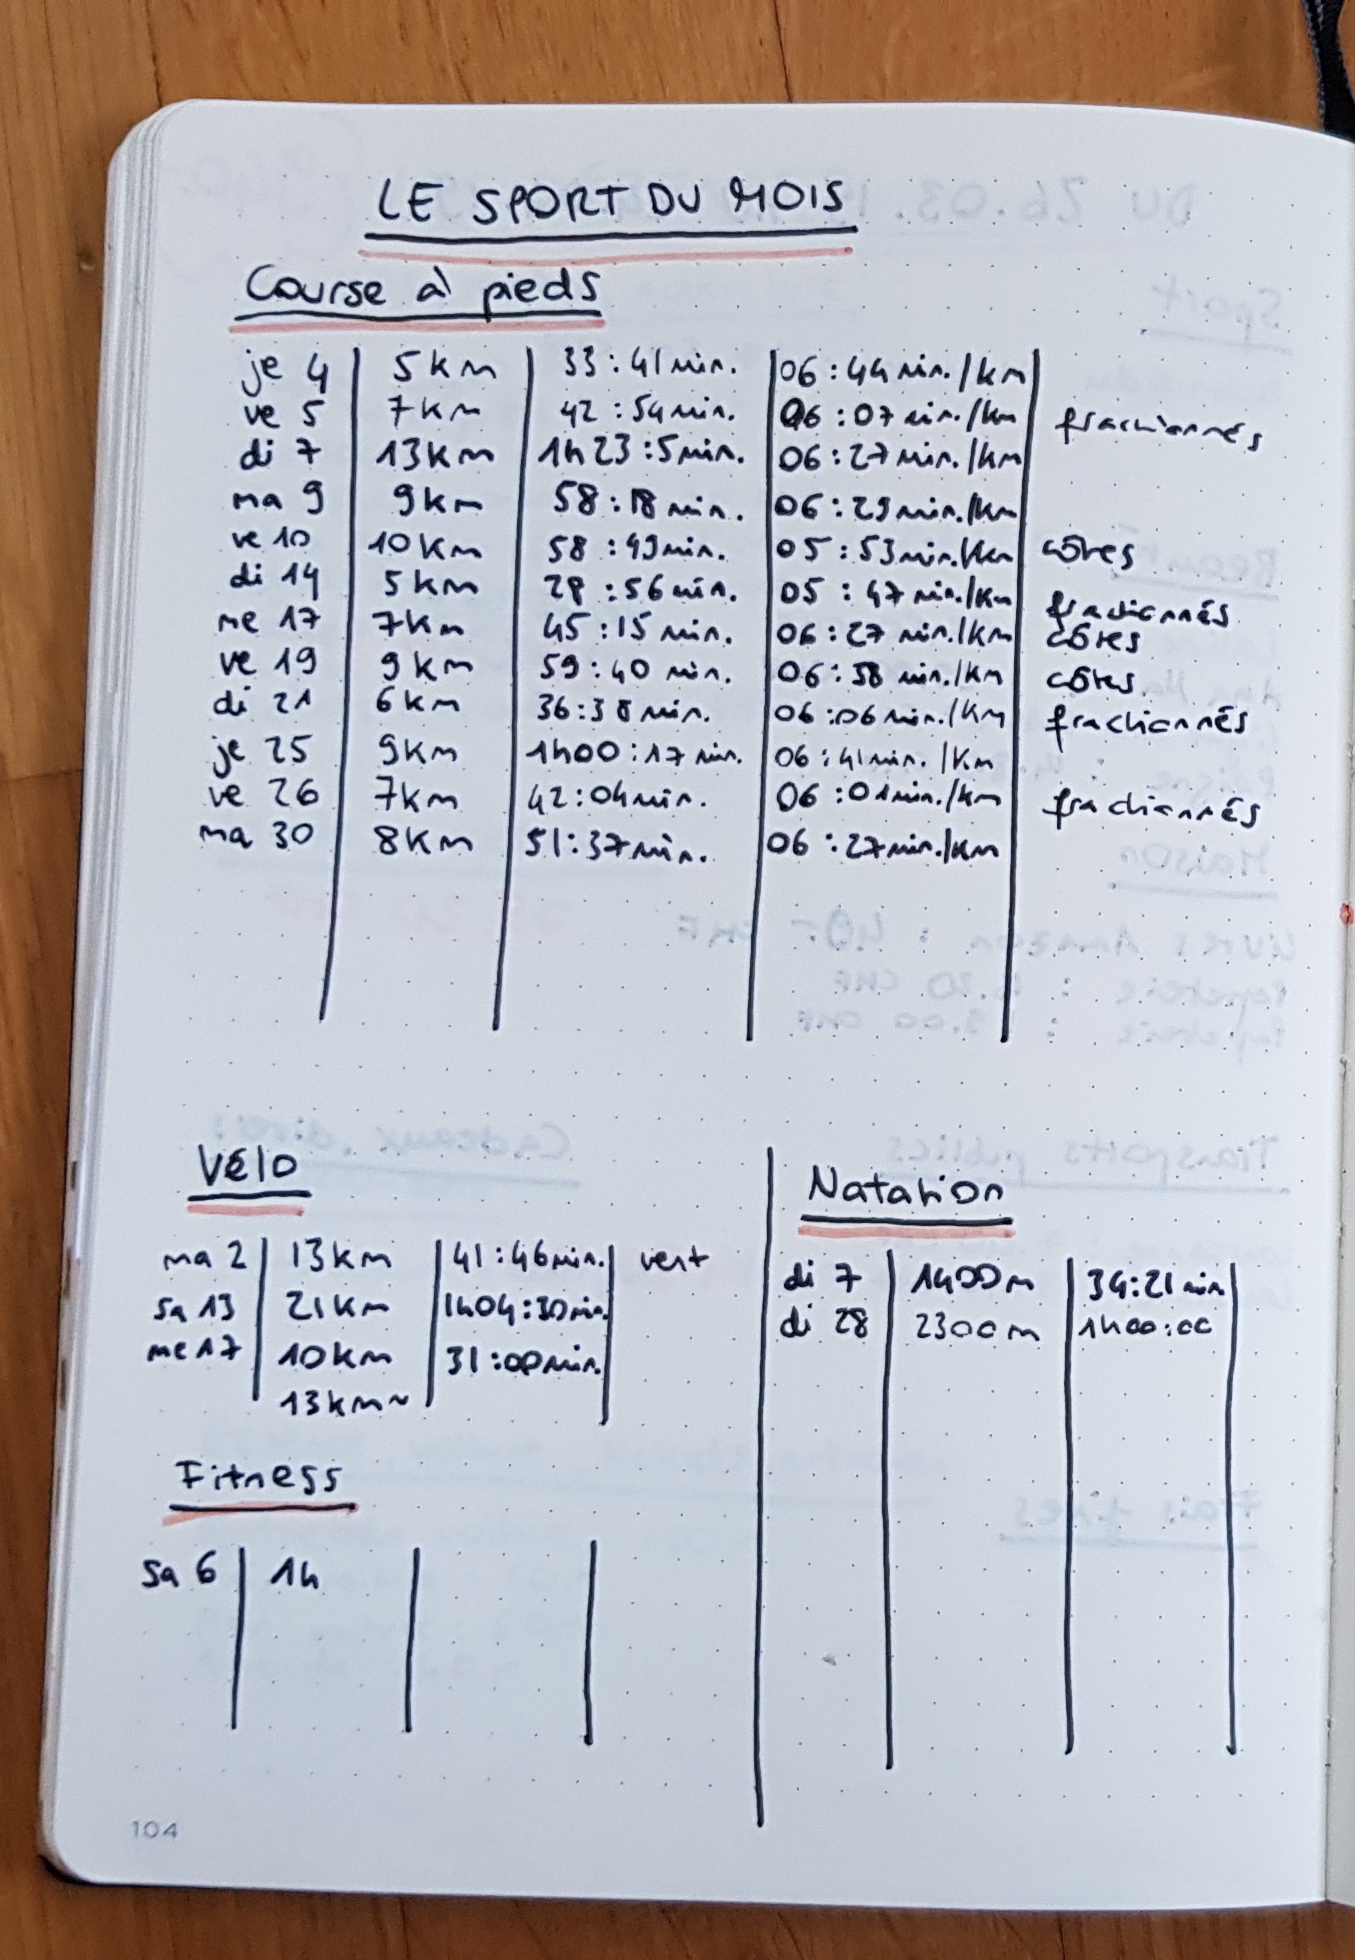 LE SPORT DU MOIS
Course à pieds
je 4 5 km 33:41 min. 06:44 min./km
ve 5 7 km 42:54 min. 06:07 min./km fractionnés
di 7 13 km 1h23:5 min. 06:27 min./km
ma 9 9 km 58:18 min. 06:29 min./km
ve 10 10 km 58:49 min. 05:53 min./km côtes
di 14 5 km 28:56 min. 05:47 min./km fractionnés
me 17 7 km 45:15 min. 06:27 min./km côtes
ve 19 9 km 59:40 min. 06:38 min./km côtes
di 21 6 km 36:38 min. 06:06 min./km fractionnés
je 25 9 km 1h00:17 min. 06:41 min./km
ve 26 7 km 42:04 min. 06:01 min./km fractionnés
ma 30 8 km 51:37 min. 06:27 min./km
Vélo
ma 2 13 km 41:46 min. vert
sa 13 21 km 1h04:30 min.
me 17 10 km 31:00 min.
13 km ~
Natation
di 7 1400 m 34:21 min
di 28 2300 m 1h00:00
Fitness
sa 6 1h
104